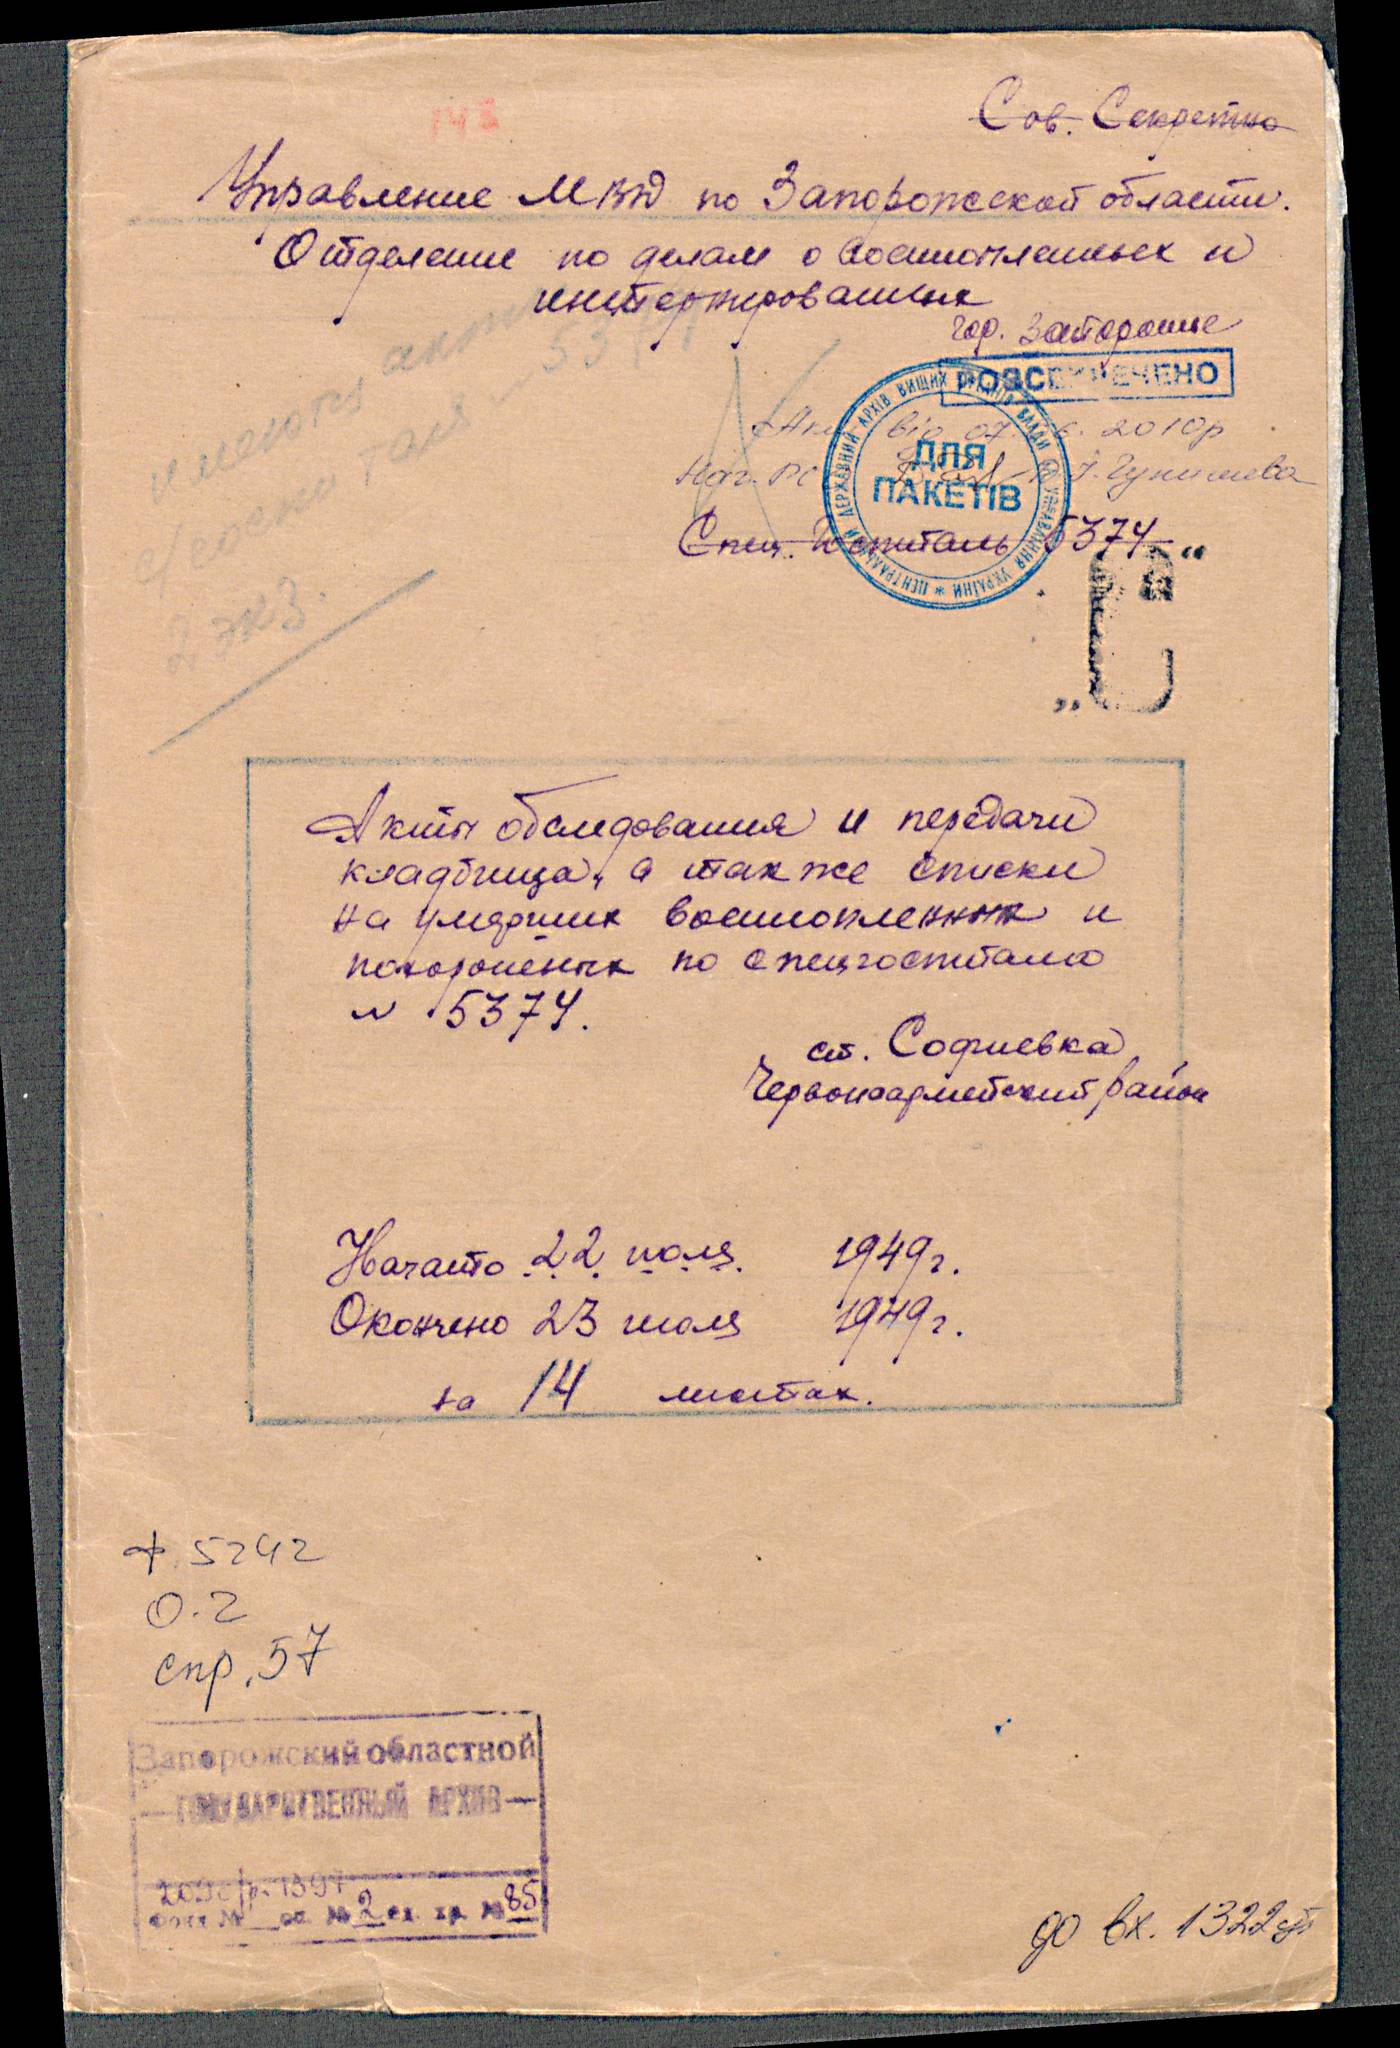 Сов. Секретно
Управление МВД по Запорожской области.
Отделение по делам о военнопленных и
интернированных
гор. Запорожье
РОЗСЕКРЕЧЕНО
від 07. 2010р
ЦЕНТРАЛЬНИЙ ДЕРЖАВНИЙ АРХІВ ВИЩИХ ОРГАНІВ ВЛАДИ ТА УПРАВЛІННЯ УКРАЇНИ *
ДЛЯ
ПАКЕТІВ
Спец. Госпиталь 5374
"С"
имеются акты
5374
с/госпиталя
2 экз.
Акты обследования и передачи
кладбища, а также списки
на умерших военнопленных и
похороненых по спецгоспиталю
№ 5374.
ст. Софиевка
Червоноармейский район
Начато 22 июля 1949г.
Окончено 23 июля 1949г.
на 14 листах.
ф. 5242
О. 2
спр. 57
Запорожский областной
ГОСУДАРСТВЕННЫЙ АРХИВ
Фонд № оп. № 2 ед. хр. № 85
до вх. 1322